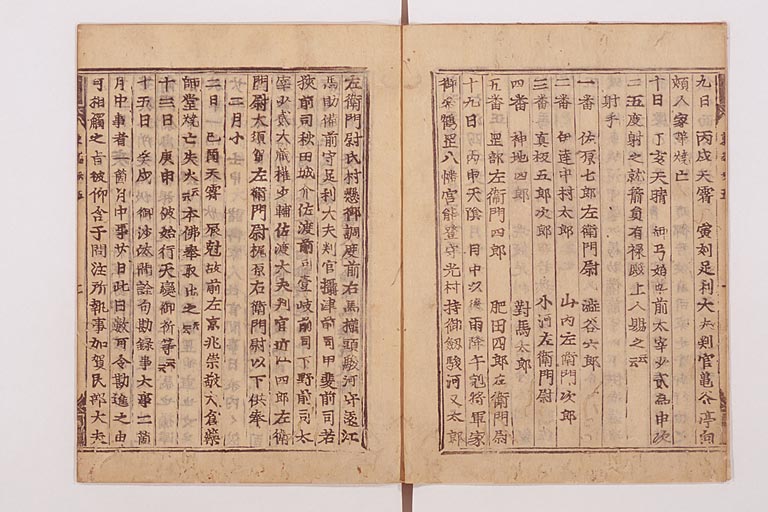 九日 丙戌天霽 寅刻足利大夫判官龜谷亭向
頬人家等燒亡
十日 丁亥天晴 御弓始 前太宰少貳為申次
二五度射之就箭員有祿殿上人賜之云云
射手
一番 佐原七郎左衛門尉 澁谷六郎
二番 伊達中村太郎 山内左衛門次郎
三番 真板五郎次郎 小河左衛門尉
四番 神地四郎 對馬太郎
五番 罡部左衛門四郎 肥田四郎左衛門尉
十九日 丙申天陰 月中以後雨降午尅將軍家
御參鶴罡八幡宮能登守光村持御釼駿河又太郎
左衛門尉氏村懸御調度前右馬權頭駿河守遠江
馬助備前守足利大夫判官攝津前司甲斐前司若
狹前司秋田城介佐渡前司壹岐前司下野前司太
宰少貳大藏權少輔佐渡大夫判官 四郎左衛
門尉大須賀左衛門尉梶原右衛門尉以下供奉
二月小
二日 己酉天霽 辰尅故前左京兆崇敬大倉藥
師堂燒亡失火云云本佛奉取出之云云
十三日 庚申 被始行天變御祈等云云
十五日 壬戌 御沙汰間詮句勘錄事大事二箇
月中事者一箇月中事廿日此日數可令勘進之由
可相觸之旨被仰含于問注所執事加賀民部大夫